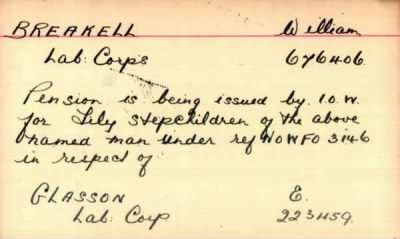 BREAKELL William
Lab: Corps 676406.
Pension is being issued by I.O.W.
for Lily stepchildren of the above
named man under ref NOWFO 3146
in respect of
GLASSON E.
Lab: Corp 223459.